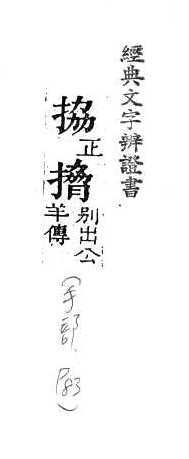 經典文字辨證書
拹正搚別出公羊傳
(手部